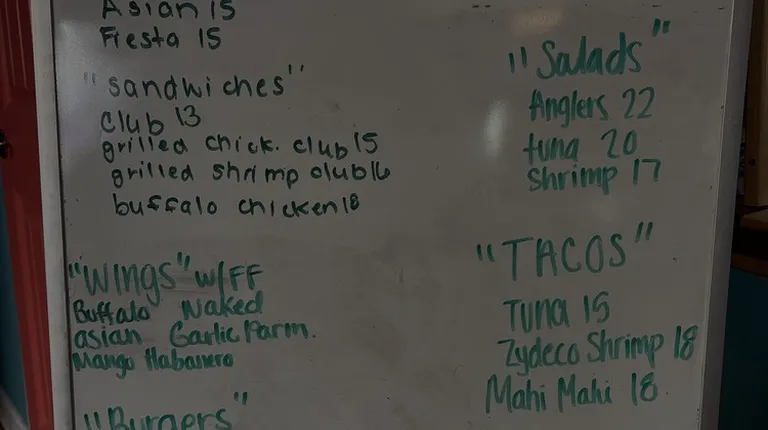 Asian 15
Fiesta 15
"sandwiches"
Club 13
grilled chick. club 15
grilled shrimp club 16
buffalo chicken 18
"Wings" w/FF
Buffalo Naked
asian Garlic Parm.
Mango Habanero
"Burgers"
"Salads"
Anglers 22
tuna 20
Shrimp 17
"TACOS"
Tuna 15
Zydeco Shrimp 18
Mahi Mahi 18